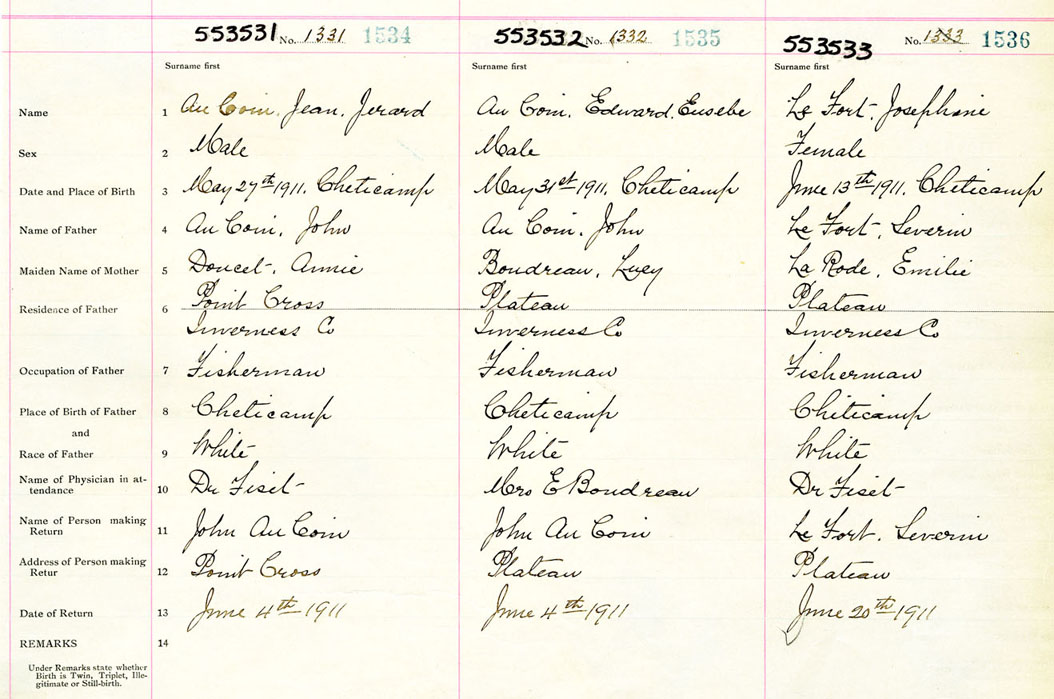 553531 No. 1331 1534 553532 No. 1332 1535 553533 No. 1333 1536
Surname first Surname first Surname first
Name 1 Au Coin, Jean, Jerard Au Coin, Edward, Eusebe Le Fort, Josephine
Sex 2 Male Male Female
Date and Place of Birth 3 May 27th 1911, Cheticamp May 31st 1911, Cheticamp June 13th 1911, Cheticamp
Name of Father 4 Au Coin, John Au Coin, John Le Fort, Severin
Maiden Name of Mother 5 Doucet, Annie Boudreau, Lucy La Rode, Emilie
Residence of Father 6 Point Cross Plateau Plateau
Inverness Co Inverness Co Inverness Co
Occupation of Father 7 Fisherman Fisherman Fisherman
Place of Birth of Father 8 Cheticamp Cheticamp Cheticamp
and
Race of Father 9 White White White
Name of Physician in at-
tendance 10 Dr Fiset Mrs E Boudreau Dr Fiset
Name of Person making
Return 11 John Au Coin John Au Coin Le Fort, Severin
Address of Person making
Retur 12 Point Cross Plateau Plateau
Date of Return 13 June 4th 1911 June 4th 1911 June 20th 1911
REMARKS 14
Under Remarks state whether
Birth is Twin, Triplet, Ille-
gitimate or Still-birth.